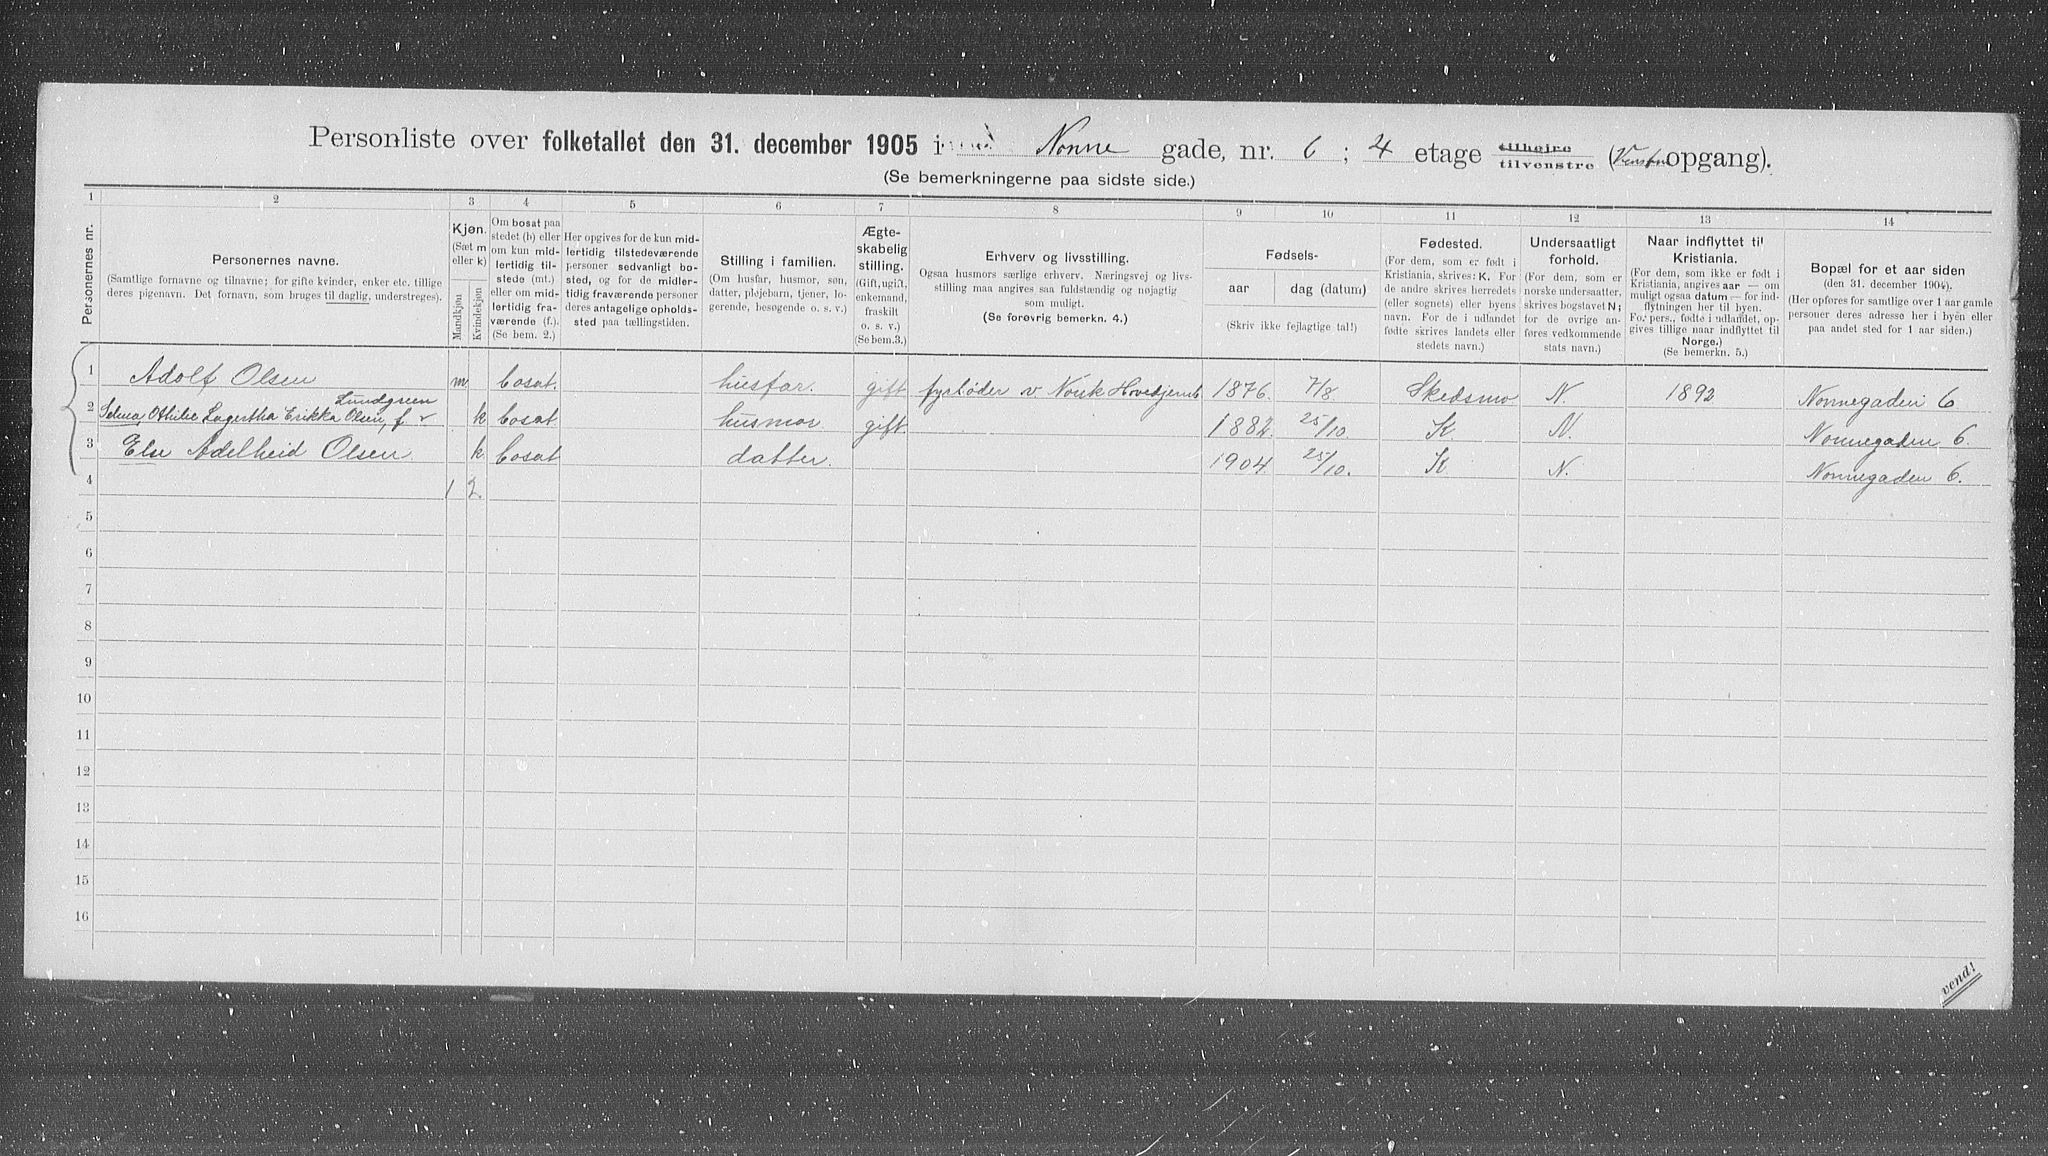 Personliste over folketallet den 31. december 1905 i Nonne gade, nr. 6 ; 4 etage tilhøire tilvenstre (Venstre opgang).
(Se bemerkningerne paa sidste side.)
1 2 3 4 5 6 7 8 9 10 11 12 13 14
Personernes nr.
Personernes navne.
(Samtlige fornavne og tilnavne; for gifte kvinder, enker etc. tillige
deres pigenavn. Det fornavn, som bruges til daglig, understreges).
Kjøn.
(Sæt m
eller k)
Mandkjøn
Kvindekjøn
Om bosat paa
stedet (b) eller
om kun mid-
lertidig til-
stede (mt.)
eller om mid-
lertidig fra-
værende (f.).
(Se bem. 2.)
Her opgives for de kun mid-
lertidig tilstedeværende
personer sedvanligt bo-
sted, og for de midler-
tidig fraværende personer
deres antagelige opholds-
sted paa tællingstiden.
Stilling i familien.
(Om husfar, husmor, søn,
datter, plejebarn, tjener, lo-
gerende, besøgende o. s. v.)
Ægte-
skabelig
stilling.
(Gift, ugift,
enkemand,
fraskilt
o. s. v.)
(Se bem. 3.)
Erhverv og livsstilling.
Ogsaa husmors særlige erhverv. Næringsvej og livs-
stilling maa angives saa fuldstændig og nøjagtig
som muligt.
(Se forøvrig bemerkn. 4.)
Fødsels-
aar
dag (datum)
(Skriv ikke fejlagtige tal!)
Fødested.
(For dem, som er født i
Kristiania, skrives: K. For
de andre skrives herredets
(eller sognets) eller byens
navn. For de i udlandet
fødte skrives landets eller
stedets navn.)
Undersaatligt
forhold.
(For dem, som er
norske undersaatter,
skrives bogstavet N;
for de øvrige an-
føres vedkommende
stats navn.)
Naar indflyttet til
Kristiania.
(For dem, som ikke er født i
Kristiania, angives aar — om
muligt ogsaa datum — for ind-
flytningen her til byen.
For pers., fødte i udlandet, op-
gives tillige naar indflyttet til
Norge.)
(Se bemerkn. 5.)
Bopæl for et aar siden
(den 31. december 1904).
(Her opføres for samtlige over 1 aar gamle
personer deres adresse her i byen eller
paa andet sted for 1 aar siden.)
1 Adolf Olsen m bosat husfar. gift fyrbøder v Norsk Hovedjernb 1876 7/8. Skedsmo N. 1892 Nonnegaden 6
Lundgreen
2 Selma Othilie Lagertha Erikka Olsen, f k bosat husmor gift 1882 25/10. K N. Nonnegaden 6.
3 Else Adelheid Olsen k bosat datter. 1904 25/10. K N. Nonnegaden 6.
4 1 2.
5
6
7
8
9
10
11
12
13
14
15
16
vend!